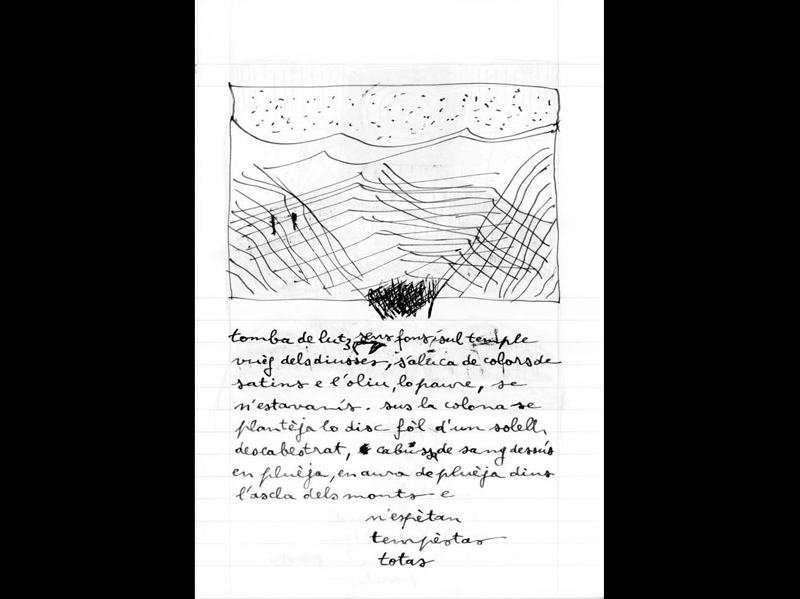 tomba de lutz sens fons, sul temple
vuèg dels diusses, s'alúca de colors de
satins e l'oliu, lo paure, se
n'estavanís. sus la colona se
plantèja lo disc fòl d'un solelh
descabestrat, de sang dessús
en pluèja, en aura de pluèja dins
l'ascla dels monts e
n'espètan
tempèstas
totas